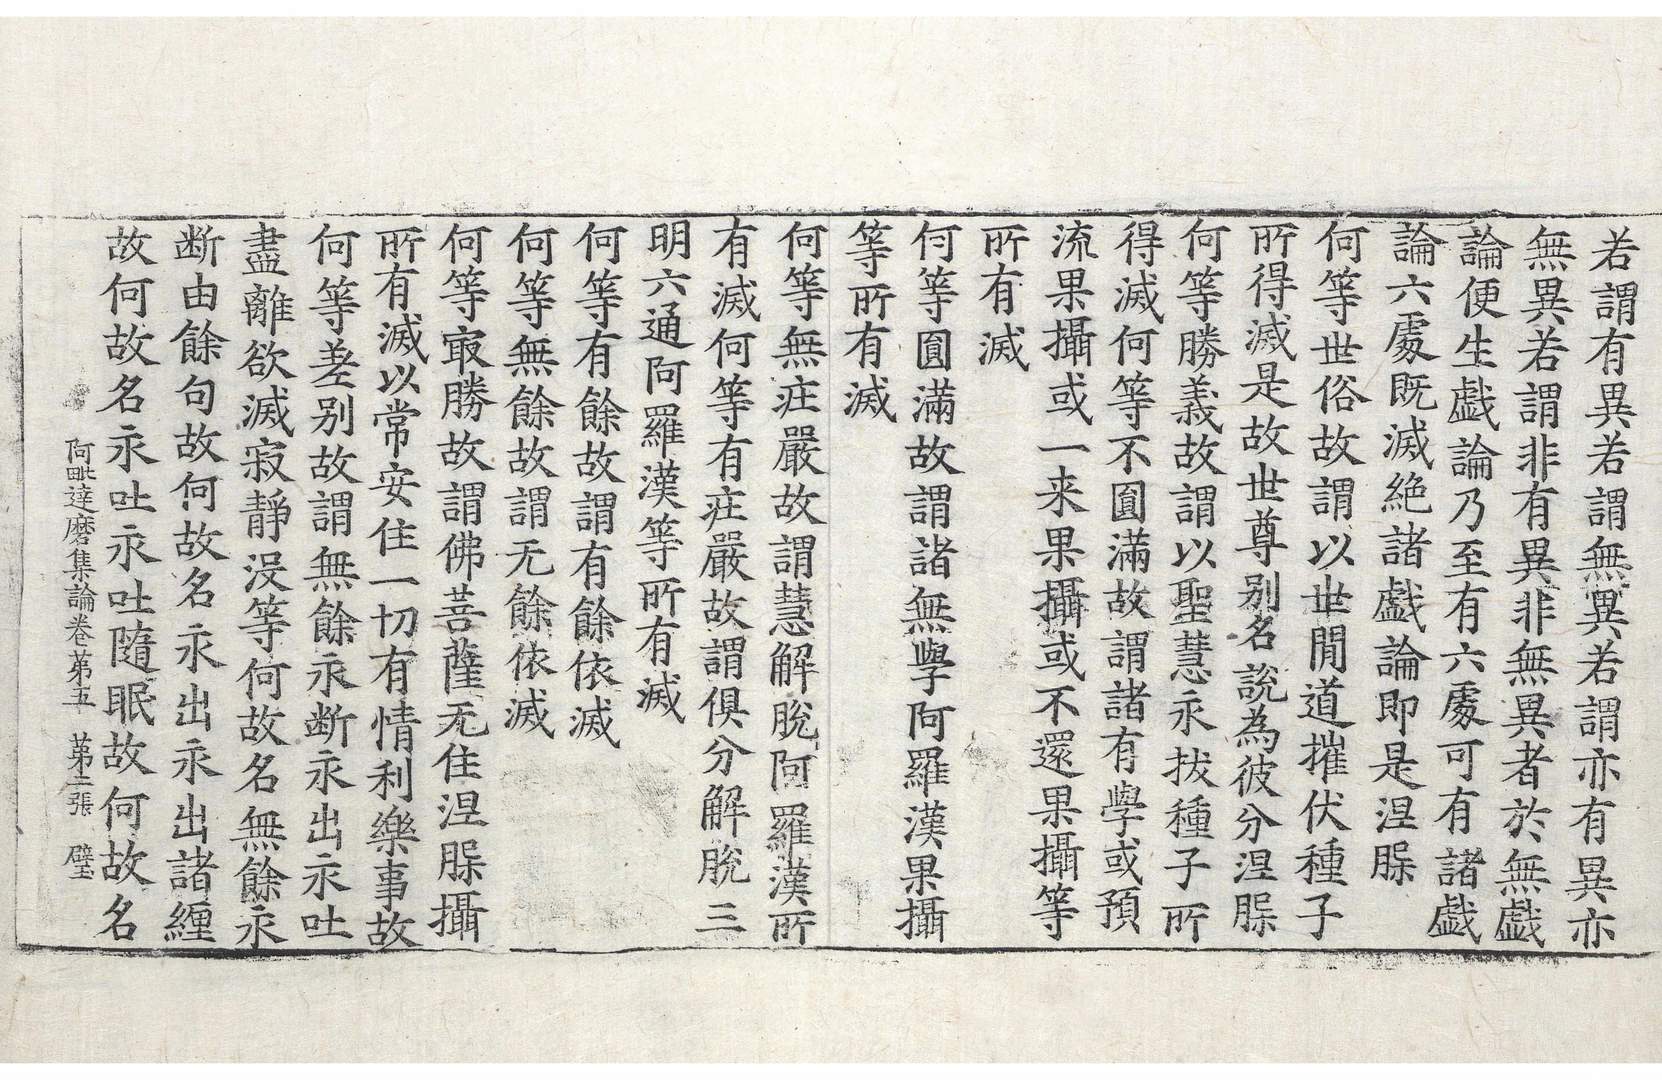 若謂有異若謂無異若謂亦有異亦
無異若謂非有異非無異者於無戲
論便生戲論乃至有六處可有諸戲
論六處既滅絶諸戲論即是涅槃
何等世俗故謂以世閒道摧伏種子
所得滅是故世尊别名說為彼分涅槃
何等勝義故謂以聖慧永拔種子所
得滅何等不圓滿故謂諸有學或預
流果攝或一来果攝或不還果攝等
所有滅
何等圓滿故謂諸無學阿羅漢果攝
等所有滅
何等無庄嚴故謂慧解脫阿羅漢所
有滅何等有庄嚴故謂俱分解脫三
明六通阿羅漢等所有滅
何等有餘故謂有餘依滅
何等無餘故謂无餘依滅
何等㝡勝故謂佛菩薩无住涅槃攝
所有滅以常安住一切有情利樂事故
何等差别故謂無餘永断永出永吐
盡離欲滅寂靜没等何故名無餘永
断由餘句故何故名永出永出諸纏
故何故名永吐永吐隨眠故何故名
阿毗達磨集論卷第五 第二張 璧